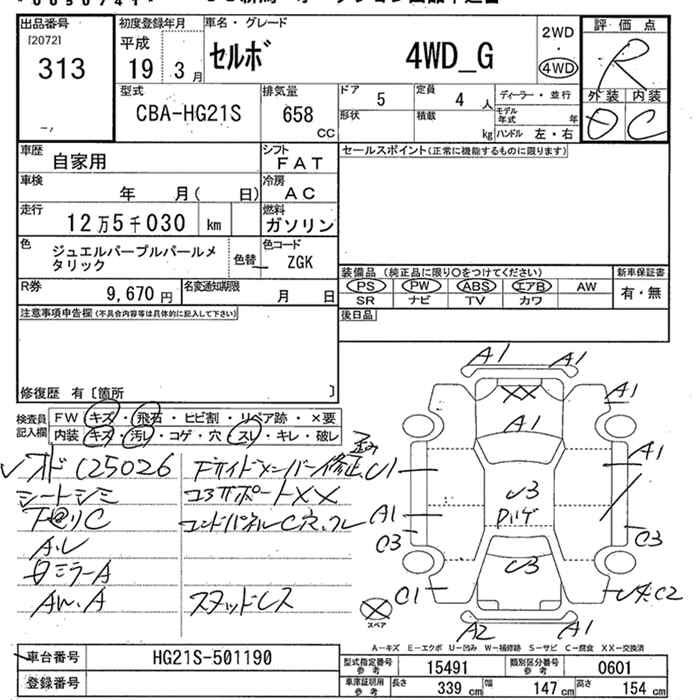 出品番号
[2072]
313
初度登録年月
平成
19 3月
車名・グレード
セルボ 4WD_G
2WD
・
4WD
評価点
R
外装 内装
C
型式
CBA-HG21S
排気量
658
CC
ドア
5
定員
4 人
ディーラー・並行
形状
積載
kg
モデル年式 年
ハンドル 左・右
車歴
自家用
シフト
FAT
セールスポイント(正常に機能するものに限ります)
車検
年 月( 日)
冷房
AC
走行
12万5千030 km
燃料
ガソリン
色
ジュエルパープルパールメタリック
色替
色コード
ZGK
装備品(純正品に限り○をつけてください)
新車保証書
PS PW ABS エアB AW
有・無
SR ナビ TV カワ
R券
9,670円
名変通知期限
月 日
後日品
注意事項申告欄(不具合内容等は具体的に記入して下さい)
修復歴 有〔箇所 〕
検査員記入欄
FW キズ・飛石・ヒビ割・リペア跡・×要
内装 キズ・汚レ・コゲ・穴・スレ・キレ・破レ
オドC25026
シートシミ
下回リC
A.L
ミラーA
AW.A
Fサイドメンバー修正
コアサポートXX
エンドパネルC穴
スタッドレス
A1 A1
A1
A1
A1
U1
U3
A1
C3
C3
U3
C1
C2
A2 A1
スペア
A－キズ E－エクボ U－凹み W－補修跡 S－サビ C－腐食 XX－交換済
車台番号
HG21S-501190
登録番号
型式指定番号参考
15491
類別区分番号参考
0601
車庫証明用参考
長さ 339 cm
幅 147 cm
高さ 154 cm